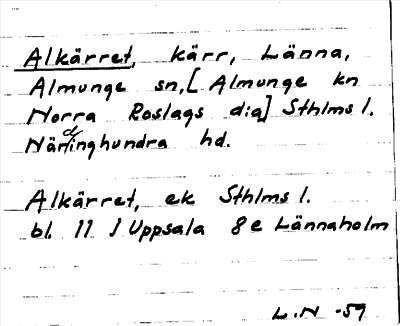 Alkärret, kärr, Länna,
Almunge sn,[Almunge kn
Norra Roslags dia] Sthlms l.
Närdinghundra hd.
Alkärret, ek Sthlms l.
bl. 11 1 Uppsala 8e Lännaholm
L.N -59